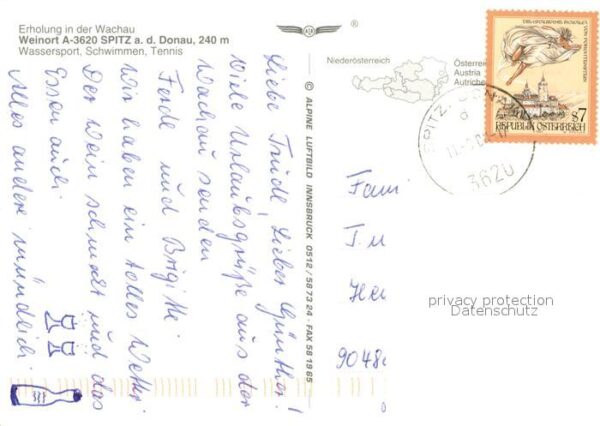 Erholung in der Wachau
Weinort A-3620 SPITZ a. d. Donau, 240 m
Wassersport, Schwimmen, Tennis
®
Niederösterreich
Österreich
Austria
Autriche
REPUBLIK ÖSTERREICH
S7
SPITZ
3620
© ALPINE LUFTBILD INNSBRUCK 0512 / 58 73 24 · FAX 58 19 65
Liebe Trude, Lieber Günther!
Viele Urlaubsgrüße aus der
Wachau senden
und Brigitte
Wir haben ein tolles Wetter.
Der Wein schmeckt und das
Essen auch
Alles andere mündlich.
Fami
Tu
He
9048
privacy protection
Datenschutz